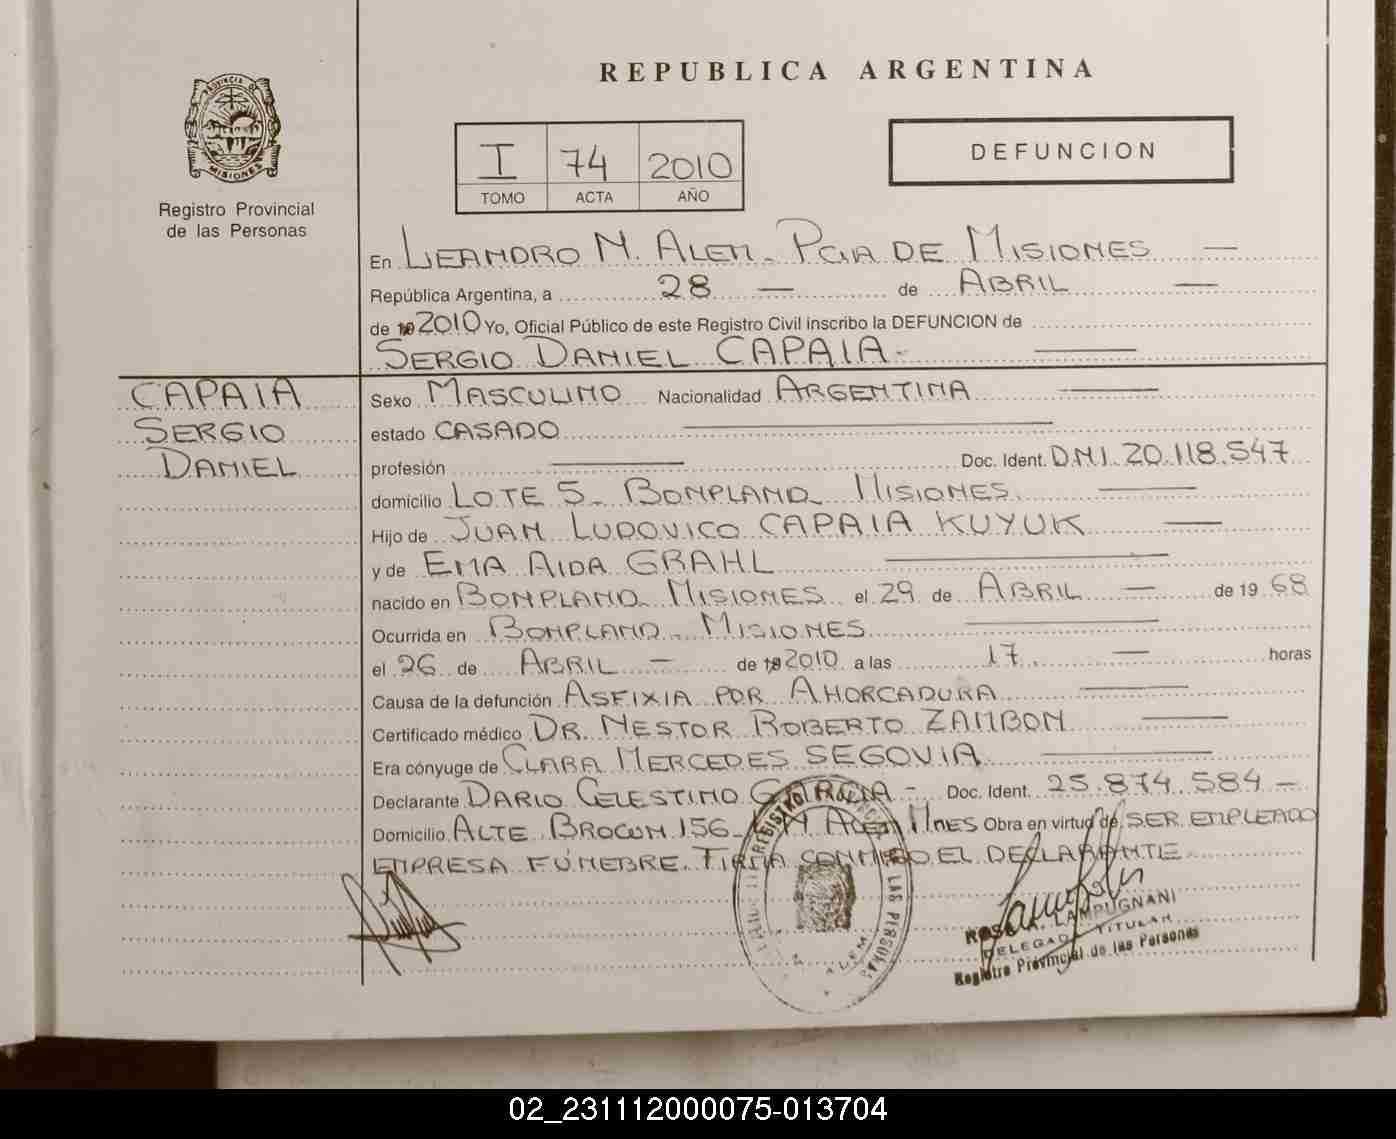 REPUBLICA ARGENTINA
PROVINCIA DE
MISIONES
Registro Provincial
de las Personas
I 74 2010
TOMO ACTA AÑO
DEFUNCION
En LEANDRO N. ALEM - PCIA DE MISIONES —
República Argentina, a 28 — de ABRIL —
de 2010 Yo, Oficial Público de este Registro Civil inscribo la DEFUNCION de
SERGIO DANIEL CAPAIA - —
CAPAIA
SERGIO
DANIEL
Sexo MASCULINO Nacionalidad ARGENTINA —
estado CASADO —
profesión — Doc. Ident. D.N.I. 20.118.547
domicilio LOTE 5 - BONPLAND MISIONES —
Hijo de JUAN LUDOVICO CAPAIA KUYUK —
y de EMA AIDA GRAHL —
nacido en BONPLAND - MISIONES el 29 de ABRIL — de 19 68
Ocurrida en BONPLAND - MISIONES —
el 26 de ABRIL — de 2010 a las 17 — horas
Causa de la defunción ASFIXIA POR AHORCADURA —
Certificado médico DR. NESTOR ROBERTO ZAMBON —
Era cónyuge de CLARA MERCEDES SEGOVIA —
Declarante DARIO CELESTINO GARCIA - Doc. Ident. 25.874.584 -
Domicilio ALTE BROWN 156 - L. N. ALEM MNES Obra en virtud de SER EMPLEADO
EMPRESA FÚNEBRE. FIRMA CONMIGO EL DECLARANTE
REGISTRO DE LAS PERSONAS
ALEM
LAMPUGNANI
DELEGADA TITULAR
Registro Provincial de las Personas
02_231112000075-013704